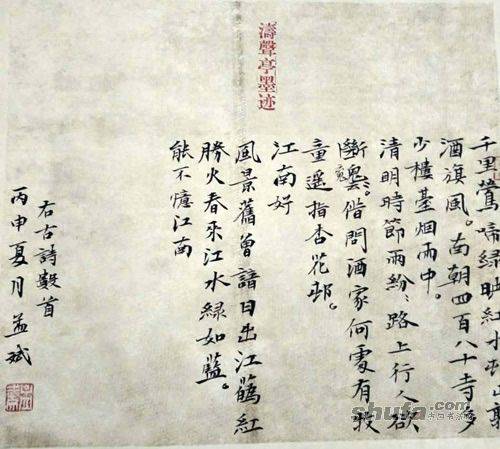 濤聲亭墨迹
千里鶯啼綠映紅水邨山郭
酒旗風。南朝四百八十寺多
少樓臺烟雨中。
清明時節雨紛〻路上行人欲
斷雲魂。借問酒家何處有牧
童遥指杏花邨。
江南好
風景舊曾諳日出江蘤紅
勝火春來江水綠如藍。
能不憶江南
右古詩數首
丙申夏月益斌
shufa.com